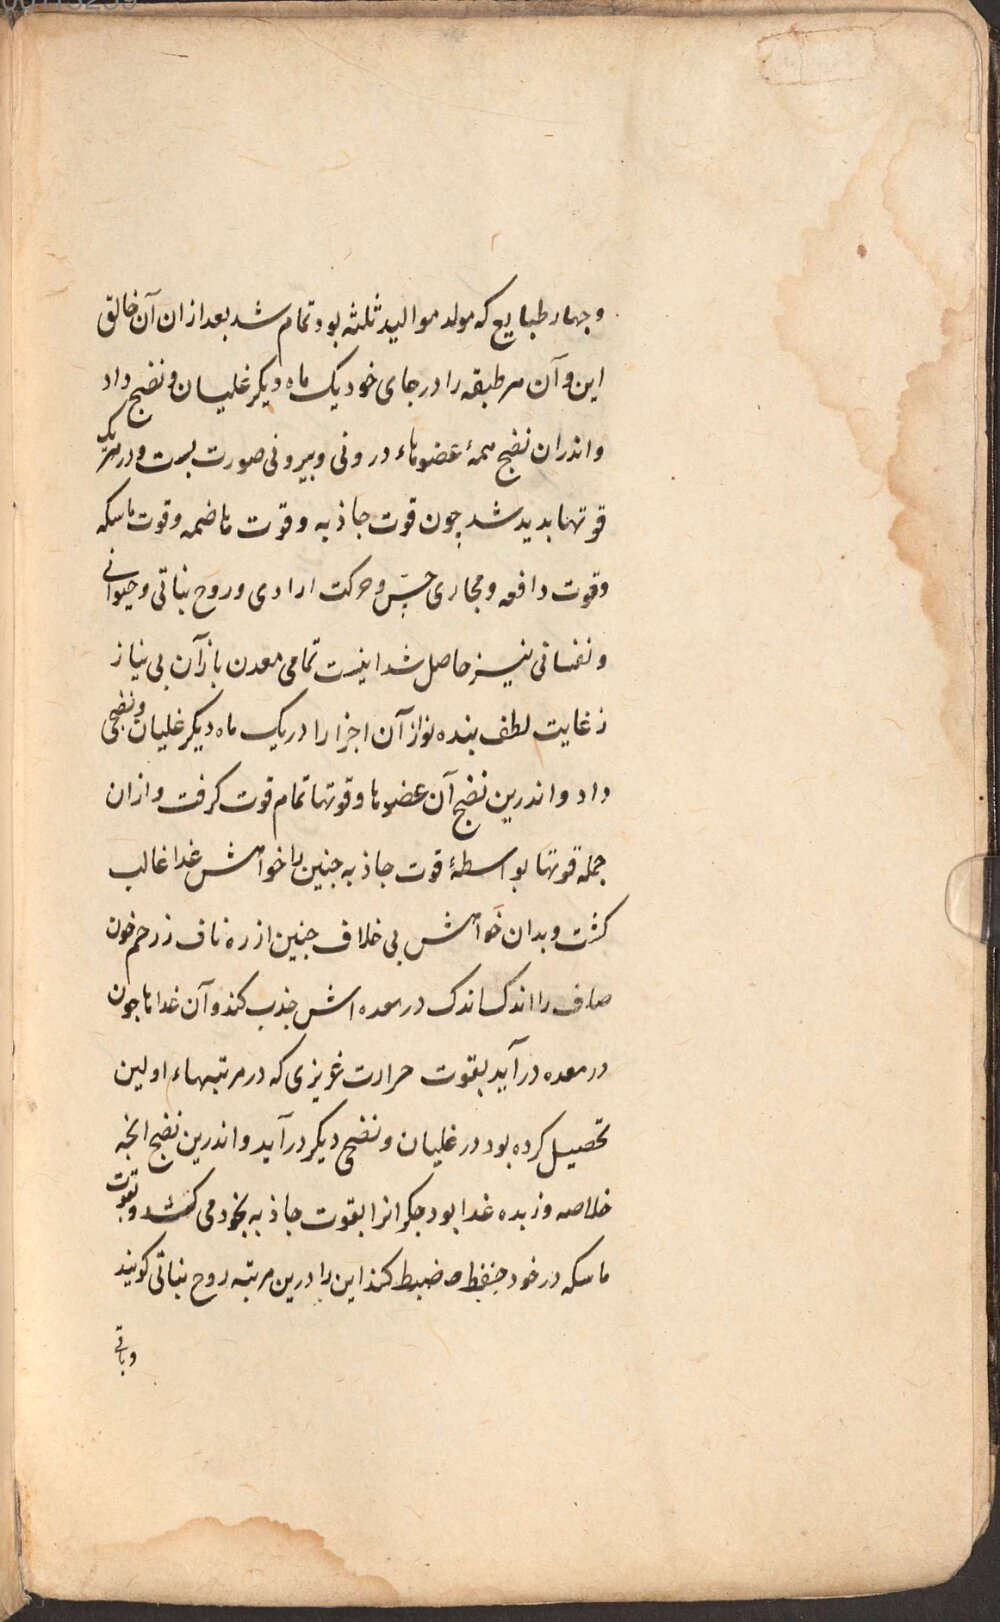 وچهار طبایع که مولد موالید ثلثه بود تمام شد بعد ازان آن خالق
این و آن هر طبقه را در جای خود یک ماه دیگر غلیان و نضج داد
و اندران نضج همهٔ عضوهاء درونی و بیرونی صورت بست و در هر یک
قوتها بدید شد چون قوت جاذبه و قوت هاضمه و قوت ماسکه
وقوت دافعه و مجاری حسّ و حرکت ارادی و روح نباتی و حیوانی
و نفسانی نیز حاصل شد اینست تمامی معدن باز آن بی نیاز
ز غایت لطف بنده نواز آن اجزا را در یک ماه دیگر غلیان و نضجی
داد و اندرین نضج آن عضوها و قوتها تمام قوت گرفت و ازان
جمله قوتها بواسطهٔ قوت جاذبه جنین را خواهش غدا غالب
کشت و بدان خواهش بی خلاف جنین از ره ناف ز رحم خون
صاف را اندک اندک در معده اش جذب کند و آن غدا ها چون
در معده در آید بقوت حرارت غریزی که در مرتبهاء اولین
تحصیل کرده بود در غلیان و نضجی دیکر در آید و اندرین نضج انچه
خلاصه و زبده غدا بود جکر انرا بقوت جاذبه بخود می کشد و بقوت
ماسکه در خود حفظ و ضبط کند این را درین مرتبه روح نباتی کویند
و باقی